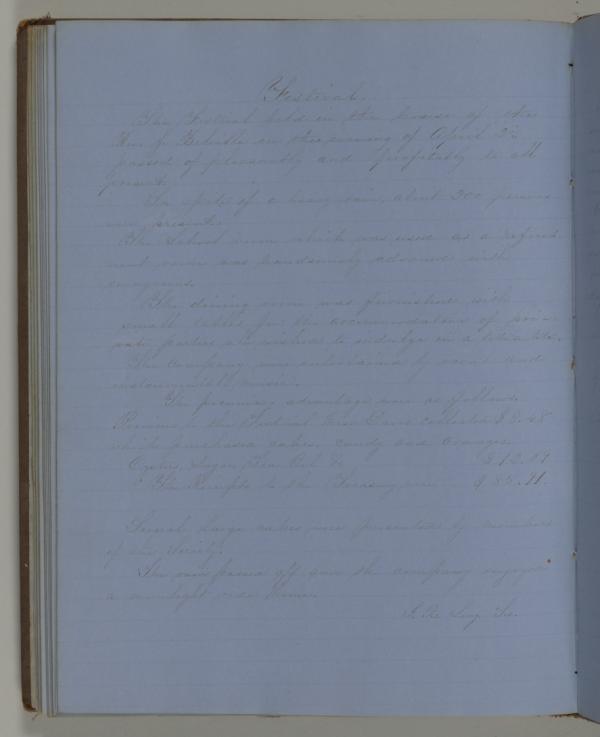 Festival.
The Festival held in the house of the
Rev. J. Belville on the evening of April 2
passed of pleasantly and profitably to all
present.
In spite of a heavy rain, about 300 persons
were present.
The School room which was used as a refresh
ment room was handsomely adorned with
evergreens.
The dining room was furnished with
small tables for the accommodation of pri
vate parties who wished to indulge in a
The company were entertained by vocal and
instrumental music.
The pecuniary advantages were as follows.
Previous to the Festival Miss Davis collected $8.48
which purchased cakes, candy and oranges.
Oysters, Sugar, Tea &c $12.
The Receipts to the Treasury were $83.91.
Several large cakes were presented by members
of the Society.
The rain passed off and the company enjoyed
a moonlight ride home.
Sec.